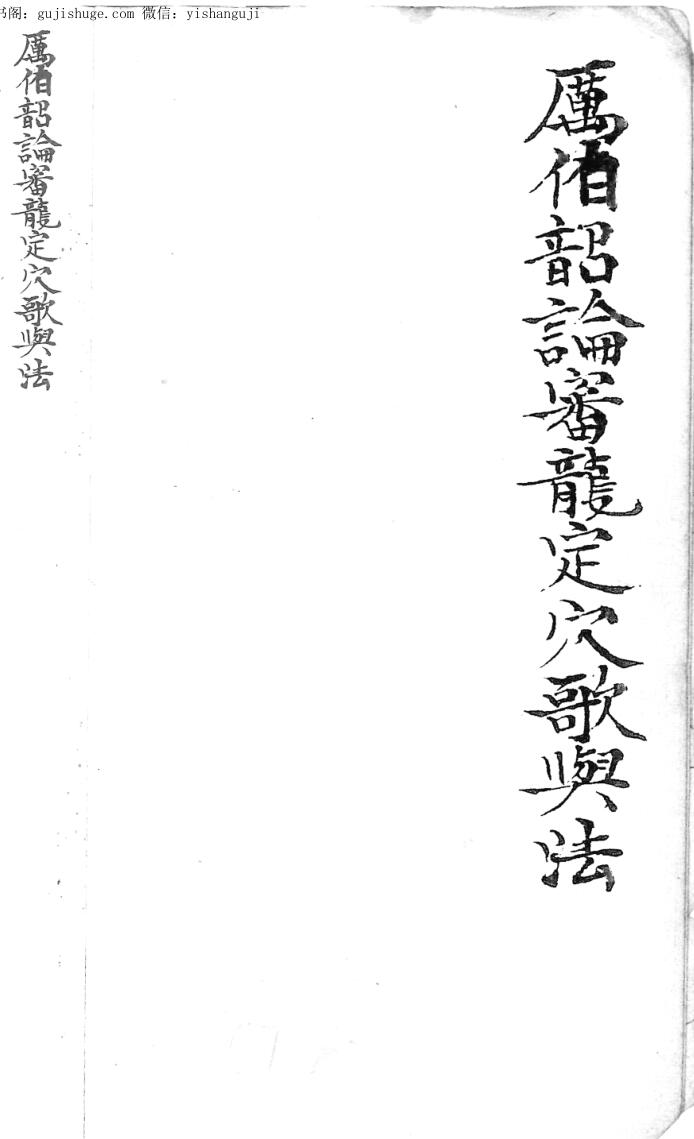 书阁: gujishuge.com 微信: yishanguji
厲伯韶論審龍定穴歌與法
厲伯韶論審龍定穴歌與法